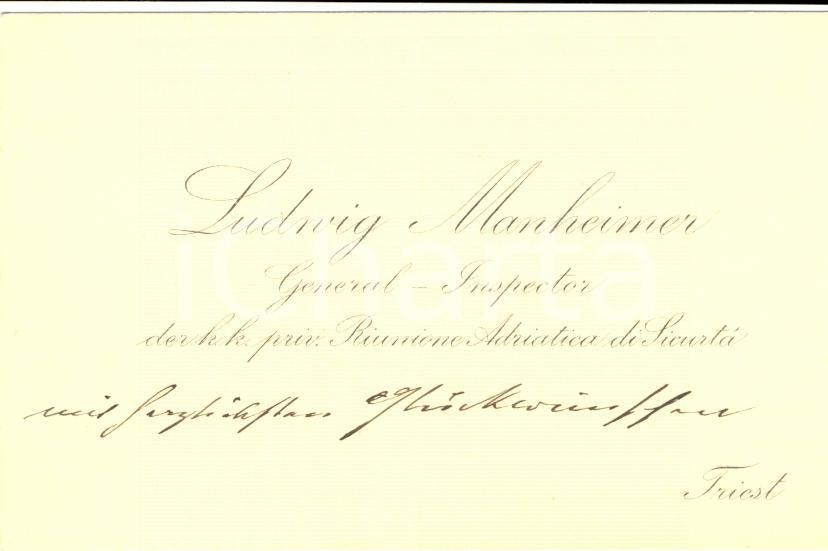 Ludwig Manheimer
General - Inspector
der k.k. priv. Riunione Adriatica di Sicurtá
mit herzlichsten Glückwünschen
Triest
iCharta